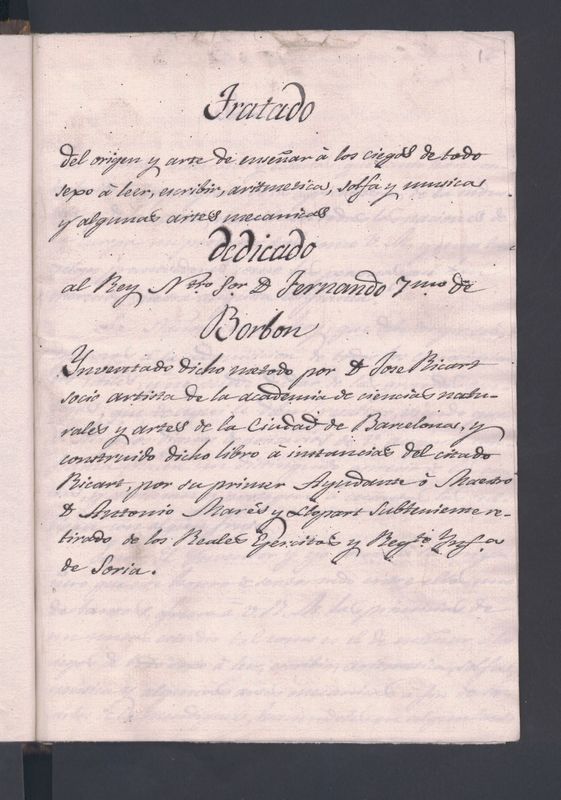 1
Tratado
del origen y arte de enseñar à los ciegos de todo
sexo à leer, escribir, aritmetica, solfa y musica
y algunas artes mecanicas
dedicado
al Rey Ntro Sor D. Fernando 7mo de
Borbon
Ynventado dicho metodo por D. Jose Ricart
socio artista de la academia de ciencias natu-
rales y artes de la Ciudad de Barcelona, y
construido dicho libro à instancias del citado
Ricart, por su primer Ayudante ô Maestro
D. Antonio Marés y Llopart Subteniente re-
tirado de los Reales Ejercitos y Regto. Ynfa.
de Soria.